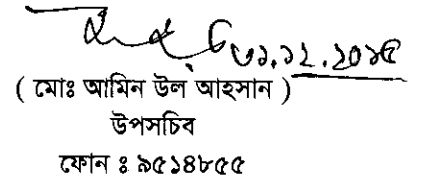 ৩১.১২.২০১৫
( মোঃ আমিন উল আহসান )
উপসচিব
ফোন ঃ ৯৫১৪৮৫৫